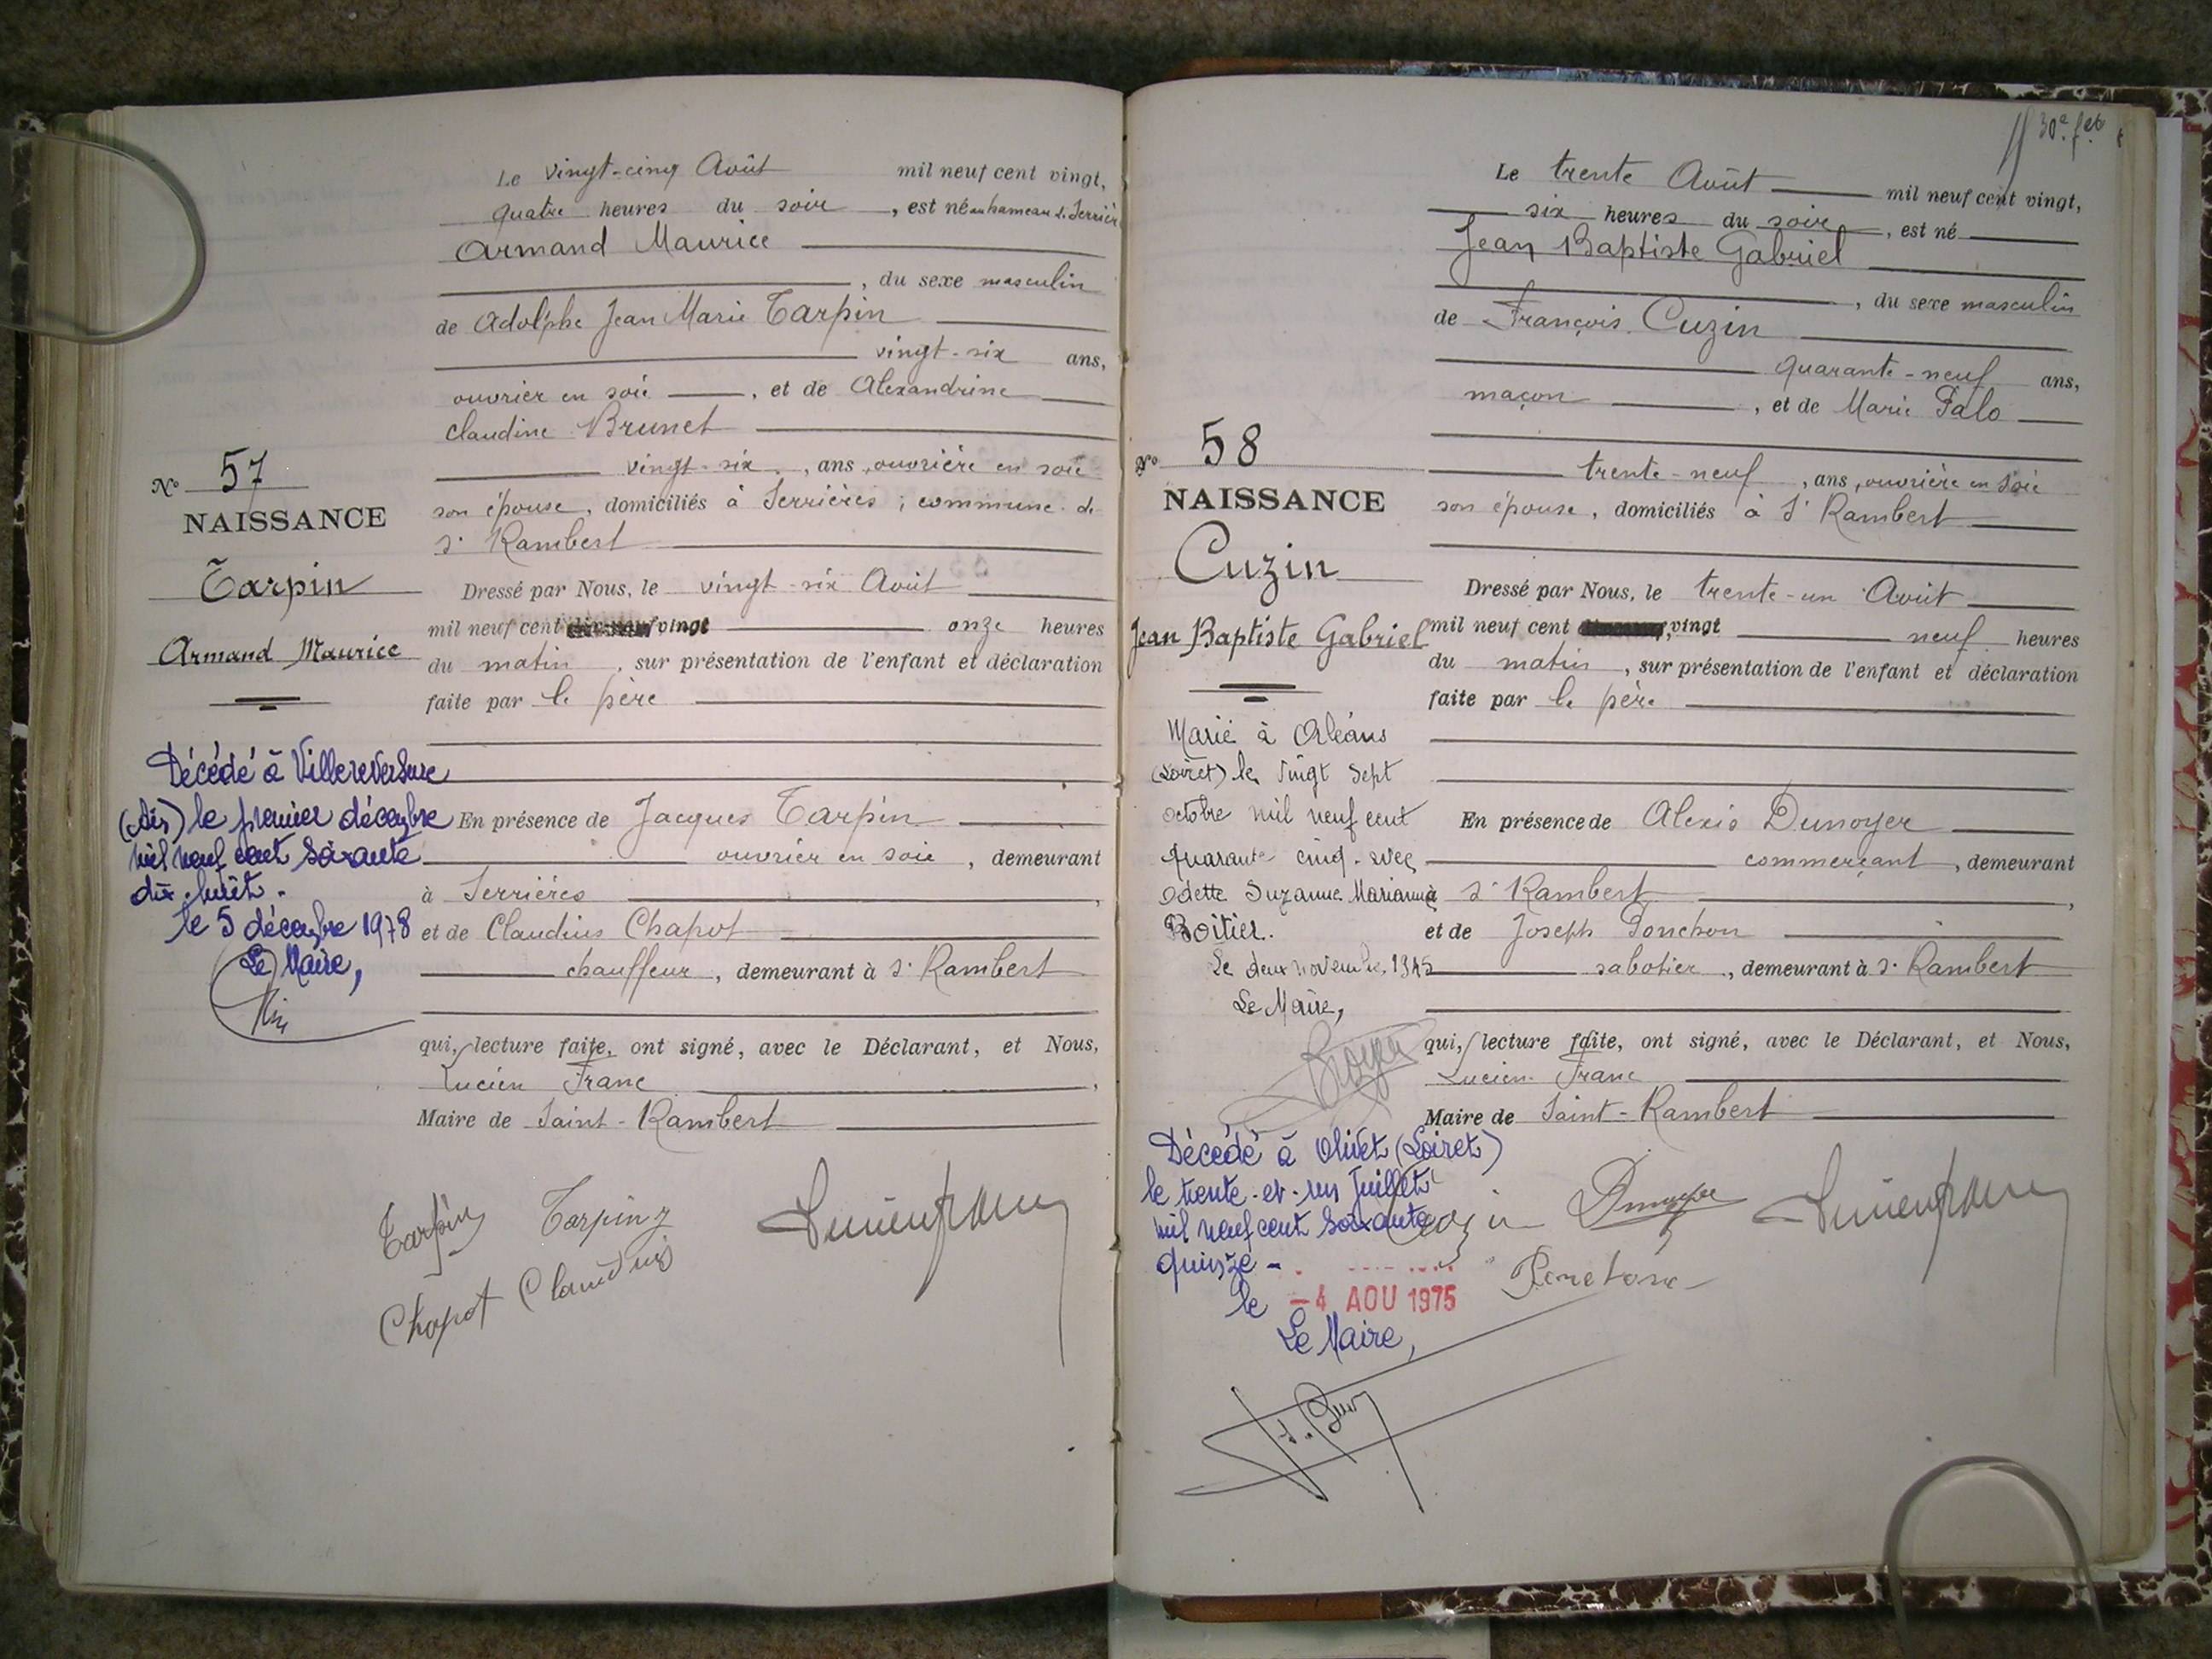 Le vingt-cinq Août mil neuf cent vingt,
quatre heures du soir, est né au hameau de Serrières
Armand Maurice
, du sexe masculin
de Adolphe Jean Marie Tarpin
vingt-six ans,
ouvrier en soie, et de Alexandrine
Claudine Brunet
vingt-six, ans, ouvrière en soie
son épouse, domiciliés à Serrières ; commune de
St Rambert
Dressé par Nous, le vingt-six Août
mil neuf cent vingt onze heures
du matin, sur présentation de l'enfant et déclaration
faite par le père
En présence de Jacques Tarpin
ouvrier en soie, demeurant
à Serrières,
et de Claudius Chapot
chauffeur, demeurant à St Rambert
qui, lecture faite, ont signé, avec le Déclarant, et Nous,
Lucien Franc,
Maire de Saint-Rambert
Tarpin Tarpin J
Chapot Claudius
Lucien Franc
No 57
NAISSANCE
Tarpin
Armand Maurice
Décédé à Villereversure
(Ain) le premier décembre
mil neuf cent soixante
dix-huit.
le 5 décembre 1978
Le Maire,
30e f.et
Le trente Août mil neuf cent vingt,
six heures du soir, est né
Jean Baptiste Gabriel
, du sexe masculin
de François Cuzin
quarante-neuf ans,
maçon, et de Marie Palo
trente-neuf, ans, ouvrière en soie
son épouse, domiciliés à St Rambert
Dressé par Nous, le trente-un Août
mil neuf cent vingt neuf heures
du matin, sur présentation de l'enfant et déclaration
faite par le père
En présence de Alexis Dunoyer
commerçant, demeurant
à St Rambert,
et de Joseph Ponchon
sabotier, demeurant à St Rambert
qui, lecture faite, ont signé, avec le Déclarant, et Nous,
Lucien Franc
Maire de Saint-Rambert
Cuzin Dunoyer Lucien Franc
Ponchon
No 58
NAISSANCE
Cuzin
Jean Baptiste Gabriel
Marié à Orléans
(Loiret) le vingt sept
octobre mil neuf cent
quarante cinq avec
Odette Suzanne Marianne
Boitier.
Le deux novembre 1945
Le Maire,
Décédé à Olivet (Loiret)
le trente-et-un Juillet
mil neuf cent soixante
quinze -
le -4 AOU 1975
Le Maire,